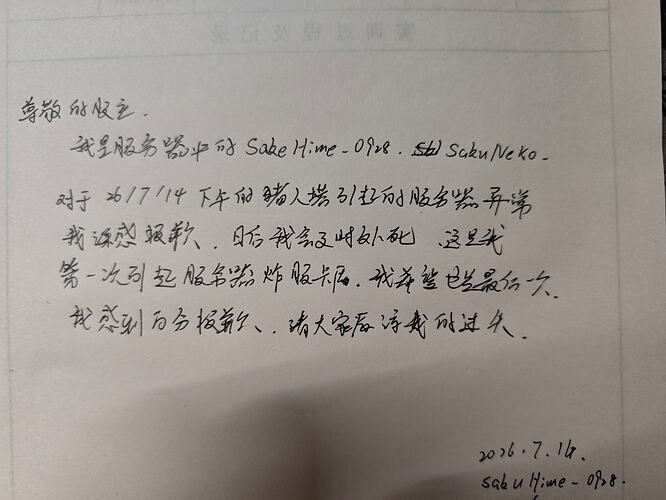 实训过程及记录
尊敬的服主.
我是服务器中的 SakuHime-0928. SakuNeko.
对于 26/7/14 下午的猪人塔引起的服务器异常
我深感抱歉、日后我会及时处死 . 这是我
第一次引起服务器炸服卡顿. 我希望也是最后一次.
我感到万分抱歉、请大家原谅我的过失.
2026.7.14.
SakuHime-0928.